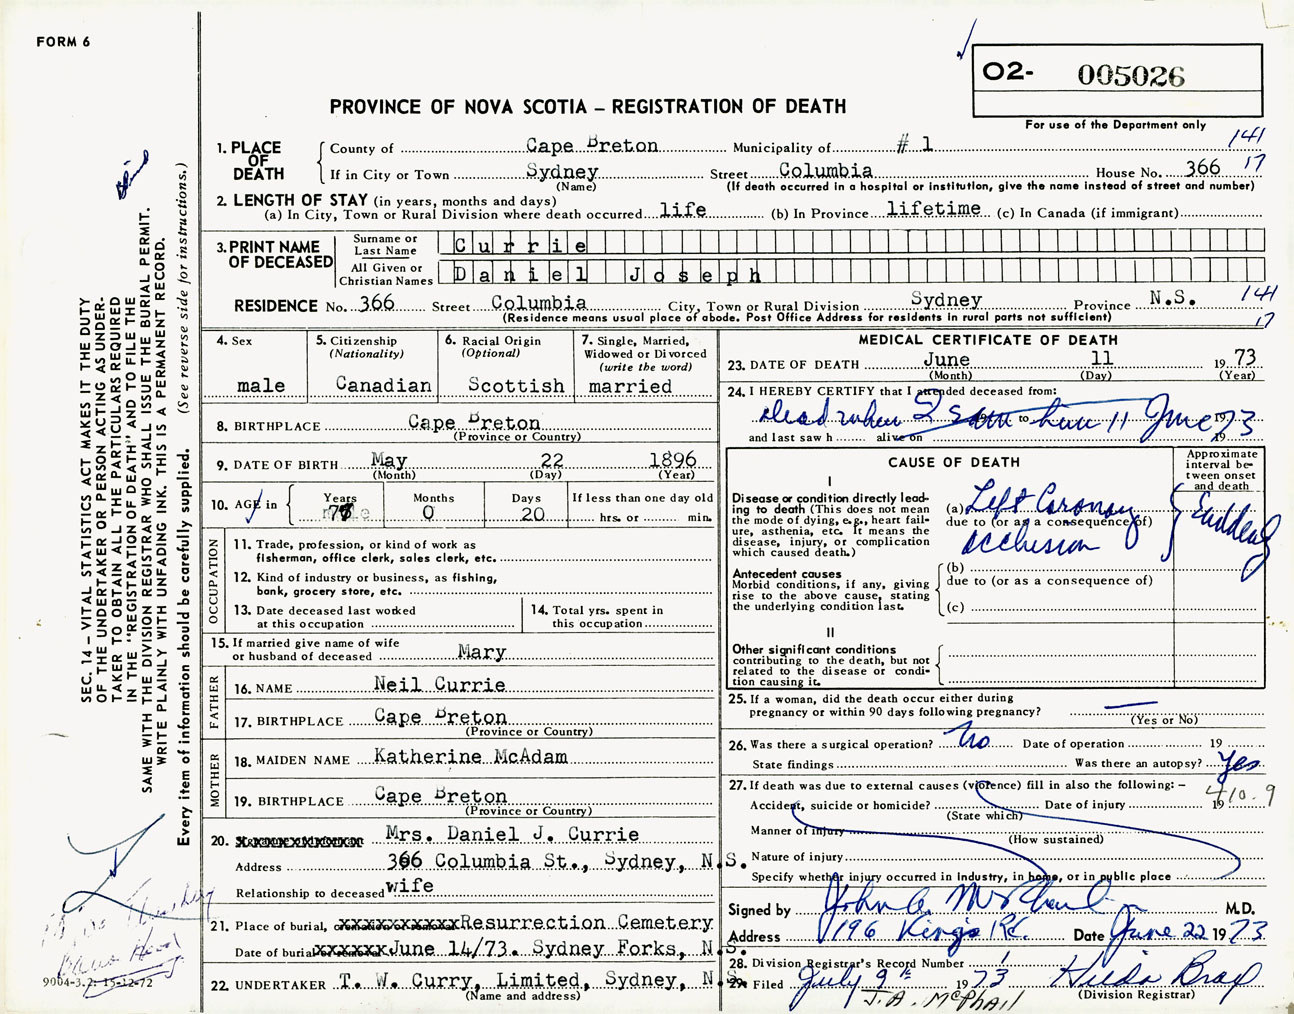 FORM 6
O2- 005026
For use of the Department only
PROVINCE OF NOVA SCOTIA – REGISTRATION OF DEATH
1. PLACE OF DEATH
County of Cape Breton Municipality of # 1 141
If in City or Town Sydney Street Columbia House No. 366 17
(Name) (If death occurred in a hospital or institution, give the name instead of street and number)
2. LENGTH OF STAY (in years, months and days)
(a) In City, Town or Rural Division where death occurred life (b) In Province lifetime (c) In Canada (if immigrant)
3. PRINT NAME OF DECEASED
Surname or Last Name Currie
All Given or Christian Names Daniel Joseph
RESIDENCE No. 366 Street Columbia City, Town or Rural Division Sydney Province N.S. 141
(Residence means usual place of abode. Post Office Address for residents in rural parts not sufficient) 17
4. Sex
male
5. Citizenship
(Nationality)
Canadian
6. Racial Origin
(Optional)
Scottish
7. Single, Married,
Widowed or Divorced
(write the word)
married
8. BIRTHPLACE Cape Breton
(Province or Country)
9. DATE OF BIRTH May 22 1896
(Month) (Day) (Year)
10. AGE in
Years Months Days If less than one day old
0 20 hrs. or min.
OCCUPATION
11. Trade, profession, or kind of work as
fisherman, office clerk, sales clerk, etc.
12. Kind of industry or business, as fishing,
bank, grocery store, etc.
13. Date deceased last worked
at this occupation
14. Total yrs. spent in
this occupation
15. If married give name of wife
or husband of deceased Mary
FATHER
16. NAME Neil Currie
17. BIRTHPLACE Cape Breton
(Province or Country)
MOTHER
18. MAIDEN NAME Katherine McAdam
19. BIRTHPLACE Cape Breton
(Province or Country)
20. Mrs. Daniel J. Currie
Address 366 Columbia St., Sydney, N.S.
Relationship to deceased wife
21. Place of burial, Resurrection Cemetery
Date of burial June 14/73. Sydney Forks, N.S.
22. UNDERTAKER T. W. Curry, Limited, Sydney, N.S.
(Name and address)
MEDICAL CERTIFICATE OF DEATH
23. DATE OF DEATH June 11 1973
(Month) (Day) (Year)
24. I HEREBY CERTIFY that I attended deceased from:
dead when I saw him 11 June 73
and last saw h alive on 19
CAUSE OF DEATH
Approximate
interval be-
tween onset
and death
I
Disease or condition directly lead-
ing to death (This does not mean
the mode of dying, e.g., heart fail-
ure, asthenia, etc. It means the
disease, injury, or complication
which caused death.)
(a) Left Coronary
due to (or as a consequence of)
occlusion
Suddenly
Antecedent causes
Morbid conditions, if any, giving
rise to the above cause, stating
the underlying condition last.
(b)
due to (or as a consequence of)
(c)
II
Other significant conditions
contributing to the death, but not
related to the disease or condi-
tion causing it.
25. If a woman, did the death occur either during
pregnancy or within 90 days following pregnancy? —
(Yes or No)
26. Was there a surgical operation? No Date of operation 19
State findings Was there an autopsy? Yes
27. If death was due to external causes (violence) fill in also the following: –
410.9
Accident, suicide or homicide? Date of injury 19
(State which)
Manner of injury
(How sustained)
Nature of injury
Specify whether injury occurred in industry, in home, or in public place
Signed by John A. McPhail M.D.
Address 196 King's Rd. Date June 22 1973
28. Division Registrar's Record Number
29. Filed July 9th 1973 Hilda Bray
J. A. McPhail (Division Registrar)
SEC. 14 – VITAL STATISTICS ACT MAKES IT THE DUTY
OF THE UNDERTAKER OR PERSON ACTING AS UNDER-
TAKER TO OBTAIN ALL THE PARTICULARS REQUIRED
IN THE "REGISTRATION OF DEATH" AND TO FILE THE
SAME WITH THE DIVISION REGISTRAR WHO SHALL ISSUE THE BURIAL PERMIT.
WRITE PLAINLY WITH UNFADING INK. THIS IS A PERMANENT RECORD.
Every item of information should be carefully supplied. (See reverse side for instructions.)
9004-3.2: 15-12-72